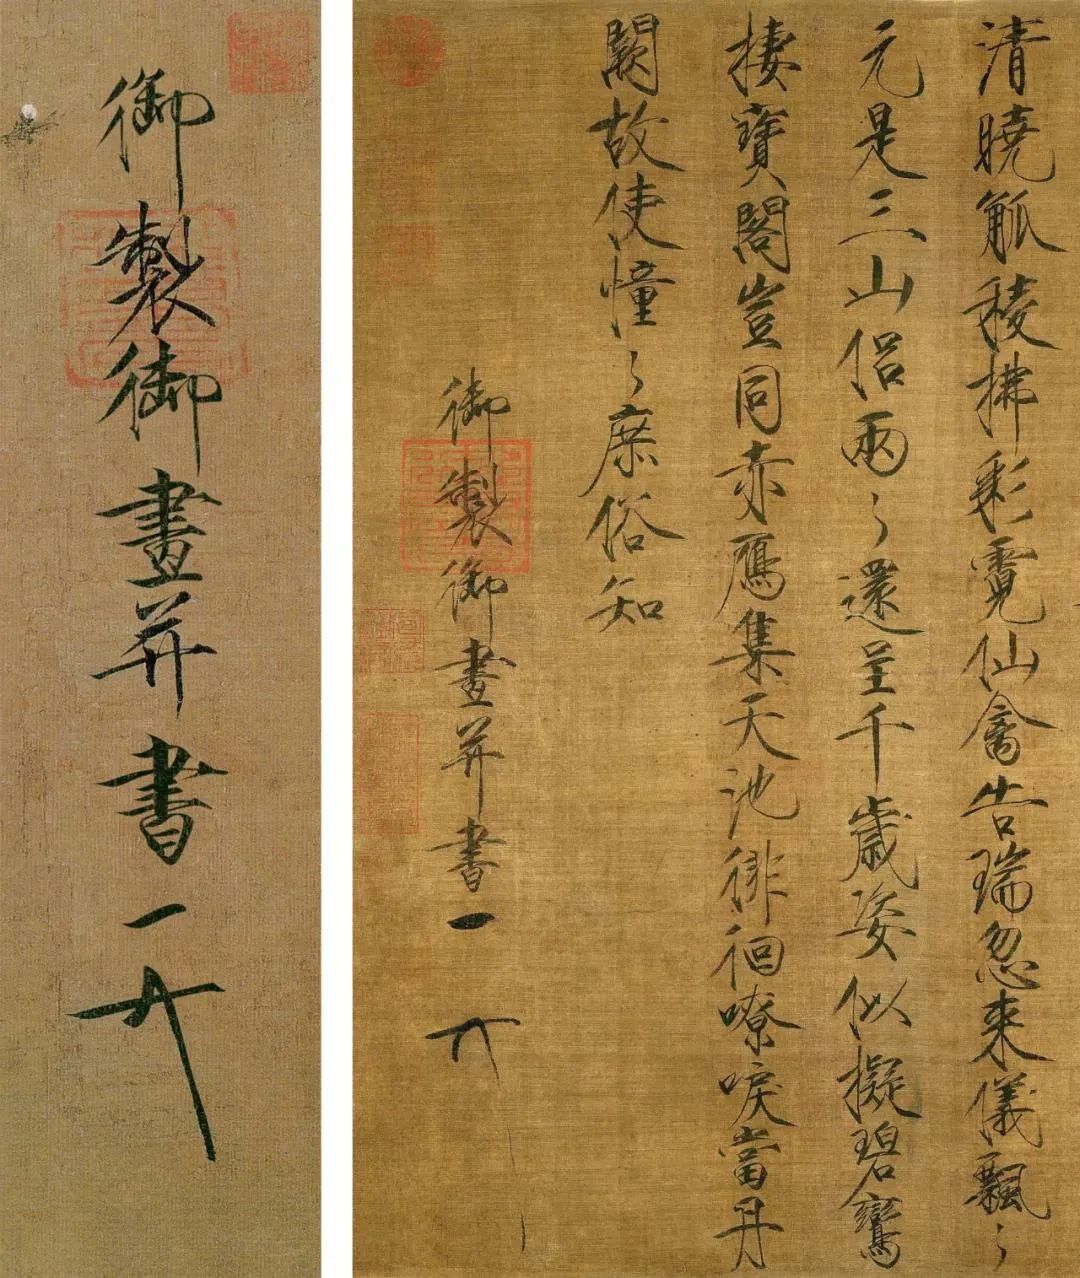 清曉觚稜拂彩霓仙禽告瑞忽来儀飄〻
元是三山侶兩〻還呈千歲姿似擬碧鸞
棲寶閣豈同赤鴈集天池徘徊嘹唳當丹
闕故使憧〻庶俗知
御製御畫并書
御製御畫并書